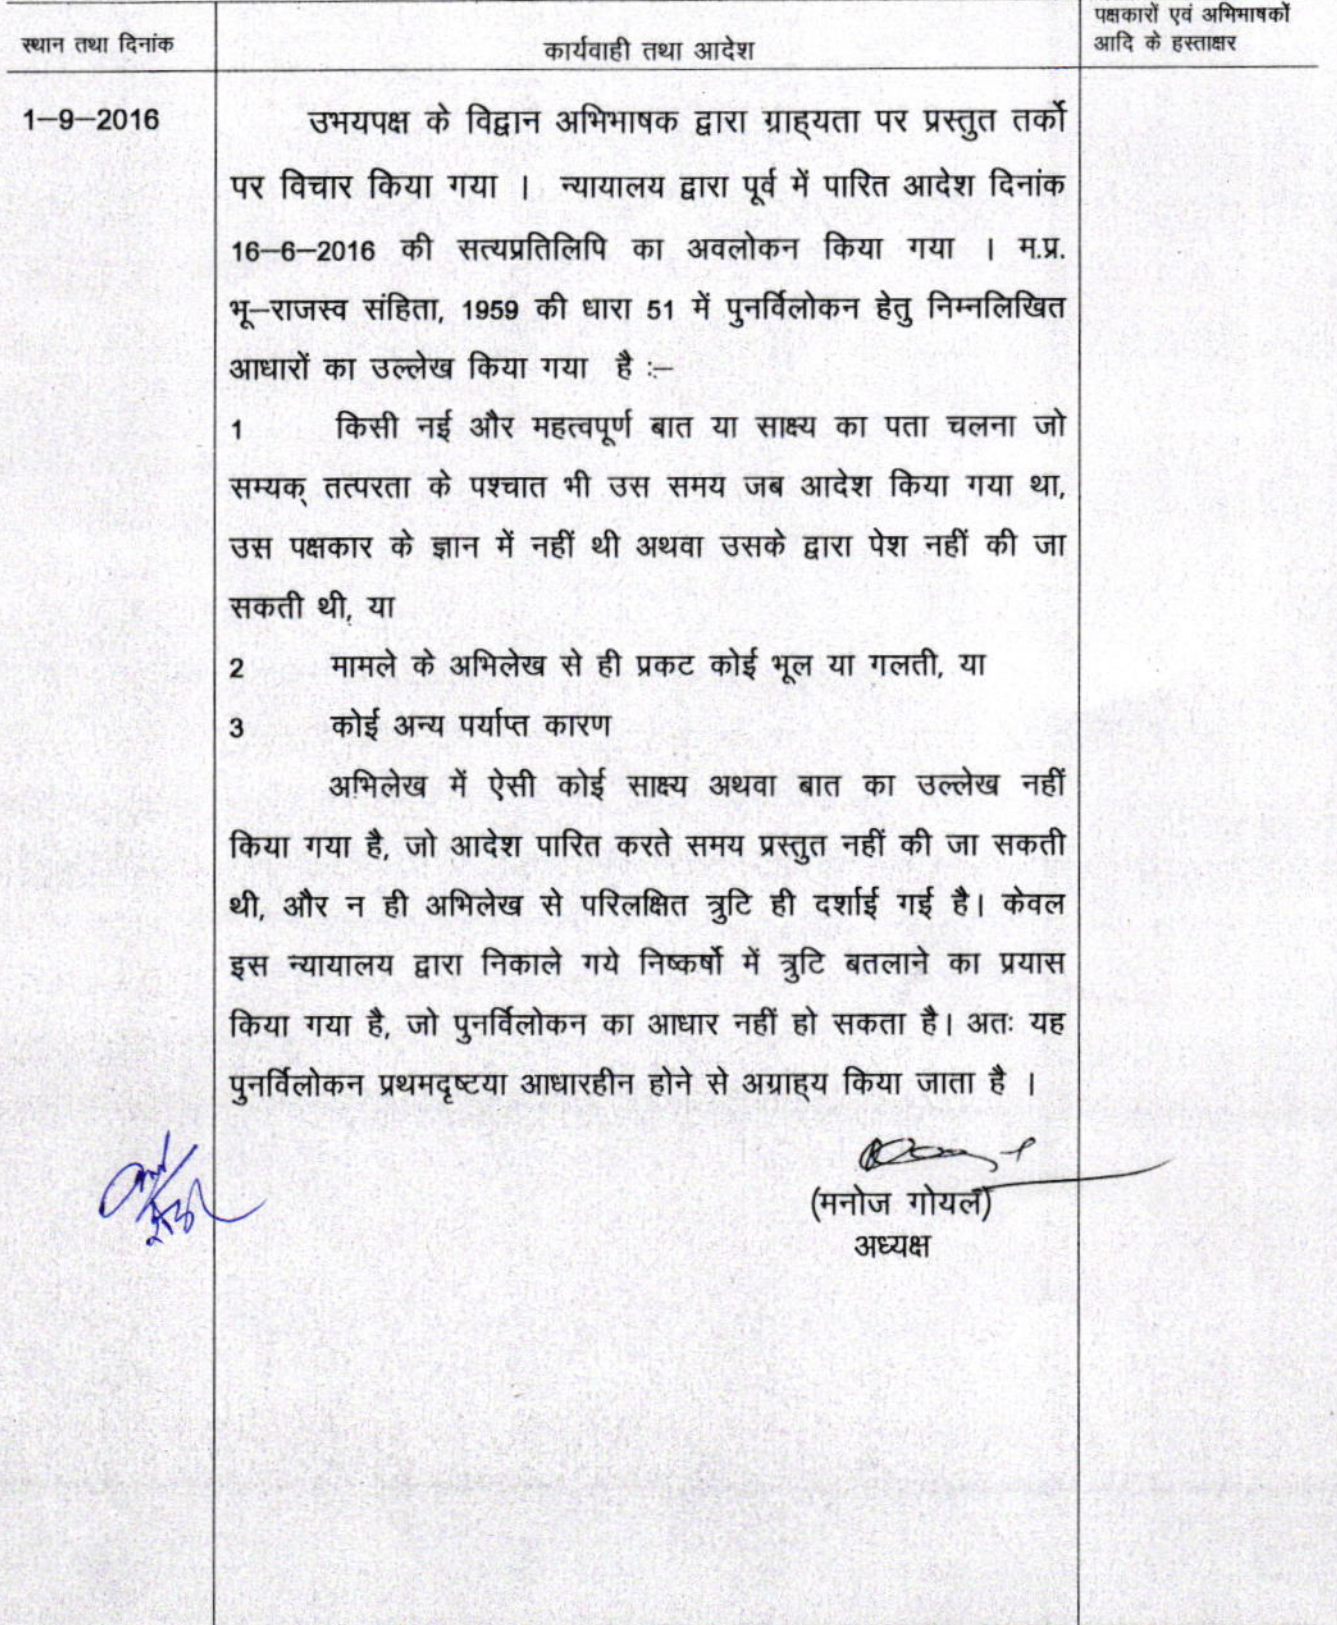 स्थान तथा दिनांक
कार्यवाही तथा आदेश
पक्षकारों एवं अभिभाषकों
आदि के हस्ताक्षर
1–9–2016
उभयपक्ष के विद्वान अभिभाषक द्वारा ग्राह्यता पर प्रस्तुत तर्को
पर विचार किया गया । न्यायालय द्वारा पूर्व में पारित आदेश दिनांक
16–6–2016 की सत्यप्रतिलिपि का अवलोकन किया गया । म.प्र.
भू–राजस्व संहिता, 1959 की धारा 51 में पुनर्विलोकन हेतु निम्नलिखित
आधारों का उल्लेख किया गया है :–
1 किसी नई और महत्वपूर्ण बात या साक्ष्य का पता चलना जो
सम्यक् तत्परता के पश्चात भी उस समय जब आदेश किया गया था,
उस पक्षकार के ज्ञान में नहीं थी अथवा उसके द्वारा पेश नहीं की जा
सकती थी, या
2 मामले के अभिलेख से ही प्रकट कोई भूल या गलती, या
3 कोई अन्य पर्याप्त कारण
अभिलेख में ऐसी कोई साक्ष्य अथवा बात का उल्लेख नहीं
किया गया है, जो आदेश पारित करते समय प्रस्तुत नहीं की जा सकती
थी, और न ही अभिलेख से परिलक्षित त्रुटि ही दर्शाई गई है। केवल
इस न्यायालय द्वारा निकाले गये निष्कर्षो में त्रुटि बतलाने का प्रयास
किया गया है, जो पुनर्विलोकन का आधार नहीं हो सकता है। अतः यह
पुनर्विलोकन प्रथमदृष्टया आधारहीन होने से अग्राह्य किया जाता है ।
(मनोज गोयल)
अध्यक्ष